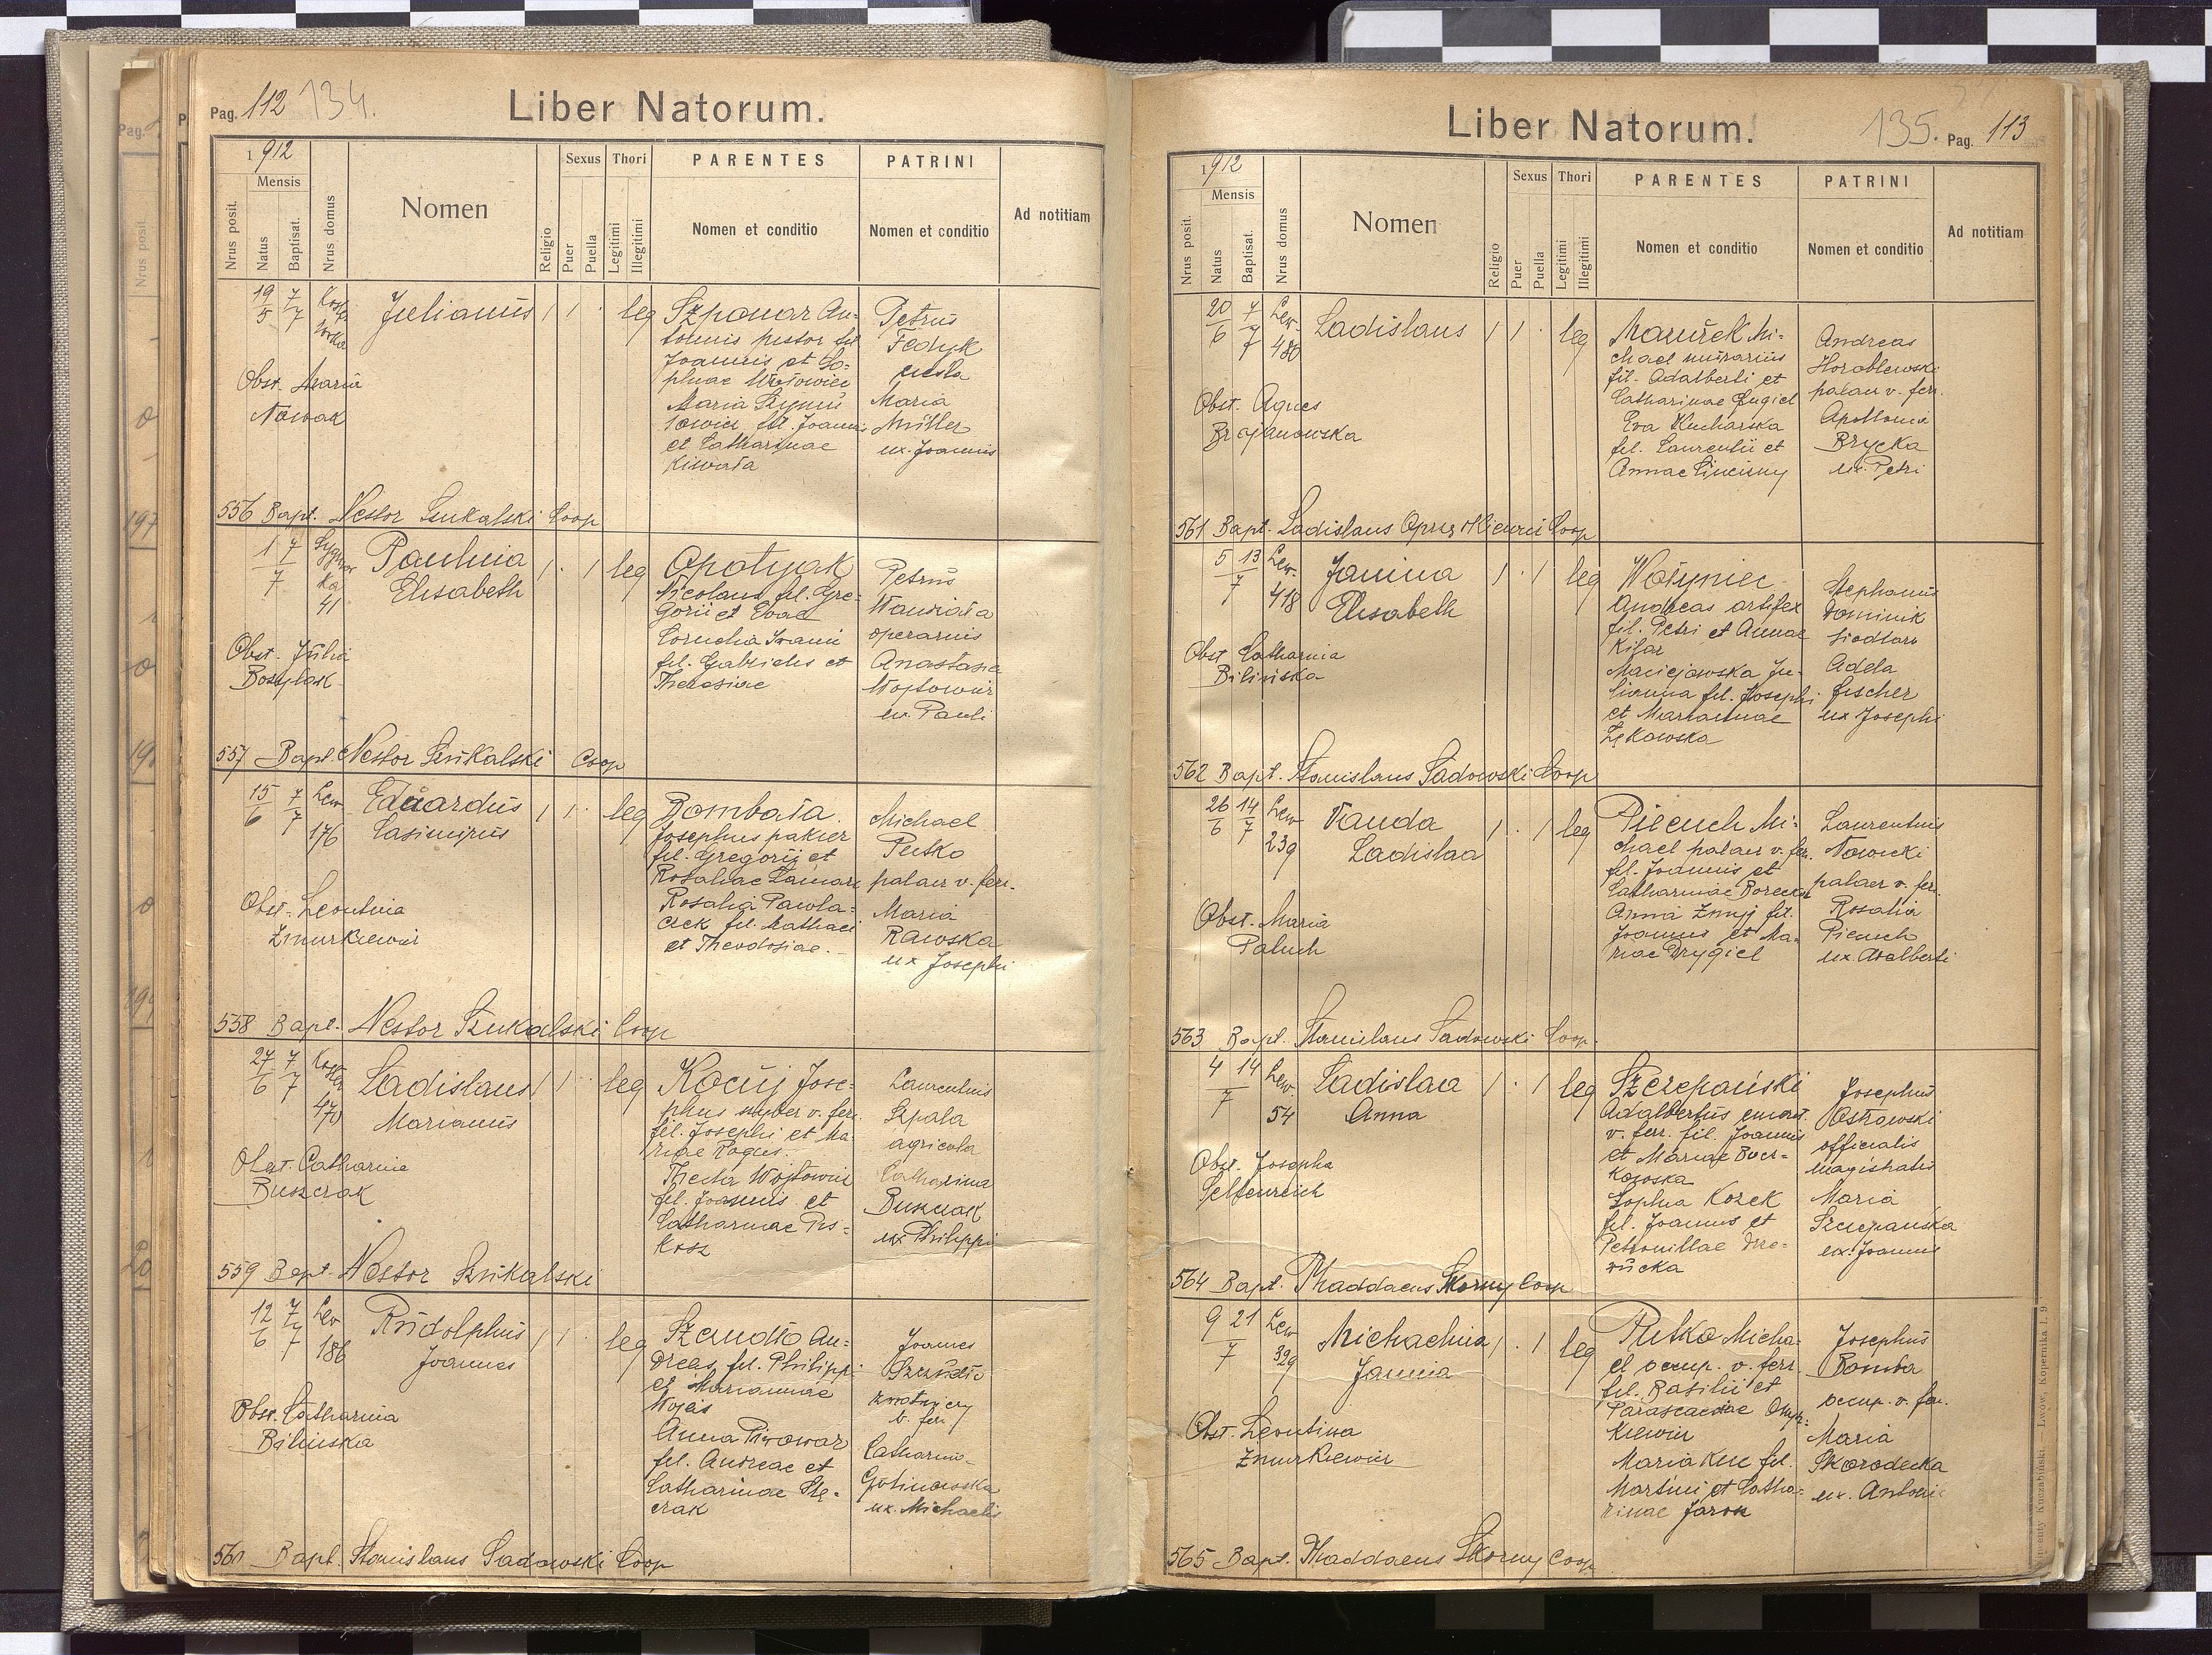 Pag. 112 134.
Liber Natorum.
1912
Mensis
Nrus posit.
Natus
Baptisat.
Nrus domus
Nomen
Religio
Sexus
Puer
Puella
Thori
Legitimi
Illegitimi
PARENTES
Nomen et conditio
PATRINI
Nomen et conditio
Ad notitiam
19/5 7/7
Julianus
1 1 leg
Szponar An-
tonius pistor fil
Joannis et So-
phiae
Maria
fil. Joannis
et Catharinae
Petrus
Fedyk
Maria
Müller
ux. Joannis
Obst. Maria
Nowak
556 Bapt. Nestor Szukalski Coop
1/7 7
41
Paulina
Elisabeth
1 1 leg
Opotyak
Nicolaus fil. Gre-
gorii et Evae
Cornelia
fil. Gabrielis et
Theresiae
Petrus
operarius
Anastasia
ux. Pauli
Obst. Julia
557 Bapt. Nestor Szukalski Coop
15/6 7/7 Lew
176
Eduardus
Casimirus
1 1 leg
Bombała
Josephus pakier
fil. Gregorij et
Rosaliae
Rosalia Pawla-
czek fil. Mathaei
et Theodosiae.
Michael
Putko
palacz v. ferr.
Maria
Rawska
ux Josephi
Obst. Leontina
Zmurkiewicz
558 Bapt. Nestor Szukalski Coop
27/6 7/7
470
Ladislaus
Marianus
1 1 leg
Kociij Jose-
phus v. ferr.
fil. Josephi et Ma-
riae Rogus.
Thecla Wojtowicz
fil. Joannis et
Catharinae Pis-
kosz
Laurentius
Szpala
agricola
Catharina
Buszczak
ux. Philippi
Obst. Catharina
Buszczak
559 Bapt. Nestor Szukalski
12/6 7/7 Lew
186
Rudolphus
Joannes
1 1 leg
Szaudło An-
dreas fil. Philippi
et Mariannae
Anna Piwowar
fil. Andreae et
Catharinae Stę-
czak
Joannes
zwrotniczy
v. ferr
Catharina
ux. Michaelis
Obst. Catharina
Bilinska
560 Bapt. Stanislaus Sadowski Coop
Liber Natorum.
135. Pag. 113
1912
Mensis
Nrus posit.
Natus
Baptisat.
Nrus domus
Nomen
Religio
Sexus
Puer
Puella
Thori
Legitimi
Illegitimi
PARENTES
Nomen et conditio
PATRINI
Nomen et conditio
Ad notitiam
20/6 7/7 Lew.
480
Ladislaus
1 1 leg
Mazurek Mi-
chael murarius
fil. Adalberti et
Catharinae
Eva Kucharska
fil. Laurentii et
Annae
Andreas
Horoblewski
palacz v. ferr.
Apollonia
Brycka
ux. Petri
Obst. Agnes
Brajanowska
561 Bapt. Ladislaus Coop
5/7 13 Lew.
418
Janina
Elisabeth
1 1 leg
Wołyniec
Andreas artifex
fil. Petri et Annae
Kifar
Maciejowska Ju-
lianna fil. Josephi
et Mariannae
Łękawska
Stephanus
Dominik
siodlarz
Adela
Fischer
ux Josephi
Obst. Catharina
Bilińska
562 Bapt. Stanislaus Sadowski Coop
26/6 14/7 Lew
239
Vanda
Ladislaa
1 1 leg
Piecuch Mi-
chael palacz v. ferr.
fil. Joannis et
Catharinae
Anna Żmij fil.
Joannis et Ma-
riae Drygiel
Laurentius
Nowicki
palacz v. ferr.
Rosalia
Piecuch
ux. Adalberti
Obst. Maria
Paluch
563 Bapt. Stanislaus Sadowski Coop.
4/7 14 Lew.
54
Ladislaa
Anna
1 1 leg
Szczepański
Adalbertus
v. ferr. fil. Joannis
et Mariae Bucz-
kowska
Sophia Kozek
fil. Joannis et
Petronillae
Josephus
Ostrowski
officialis
magistratis
Maria
Szczepańska
ux. Joannis
Obst. Josepha
Seltenreich
564 Bapt. Thaddaeus Skorny Coop
9/7 21 Lew
329
Michaelina
Janina
1 1 leg
Putko Micha-
el occup. v. ferr
fil. Basilii et
Parascaevae
Maria Kuc fil.
Martini et Catha-
rinae Jarosz
Josephus
Bomba
occup. v. ferr.
Maria
Skorodecka
ux. Antoni
Obst. Leontina
Zmurkiewicz
565 Bapt. Thaddaeus Skorny Coop
Kuczabiński. — Lwów, Kopernika l. 9